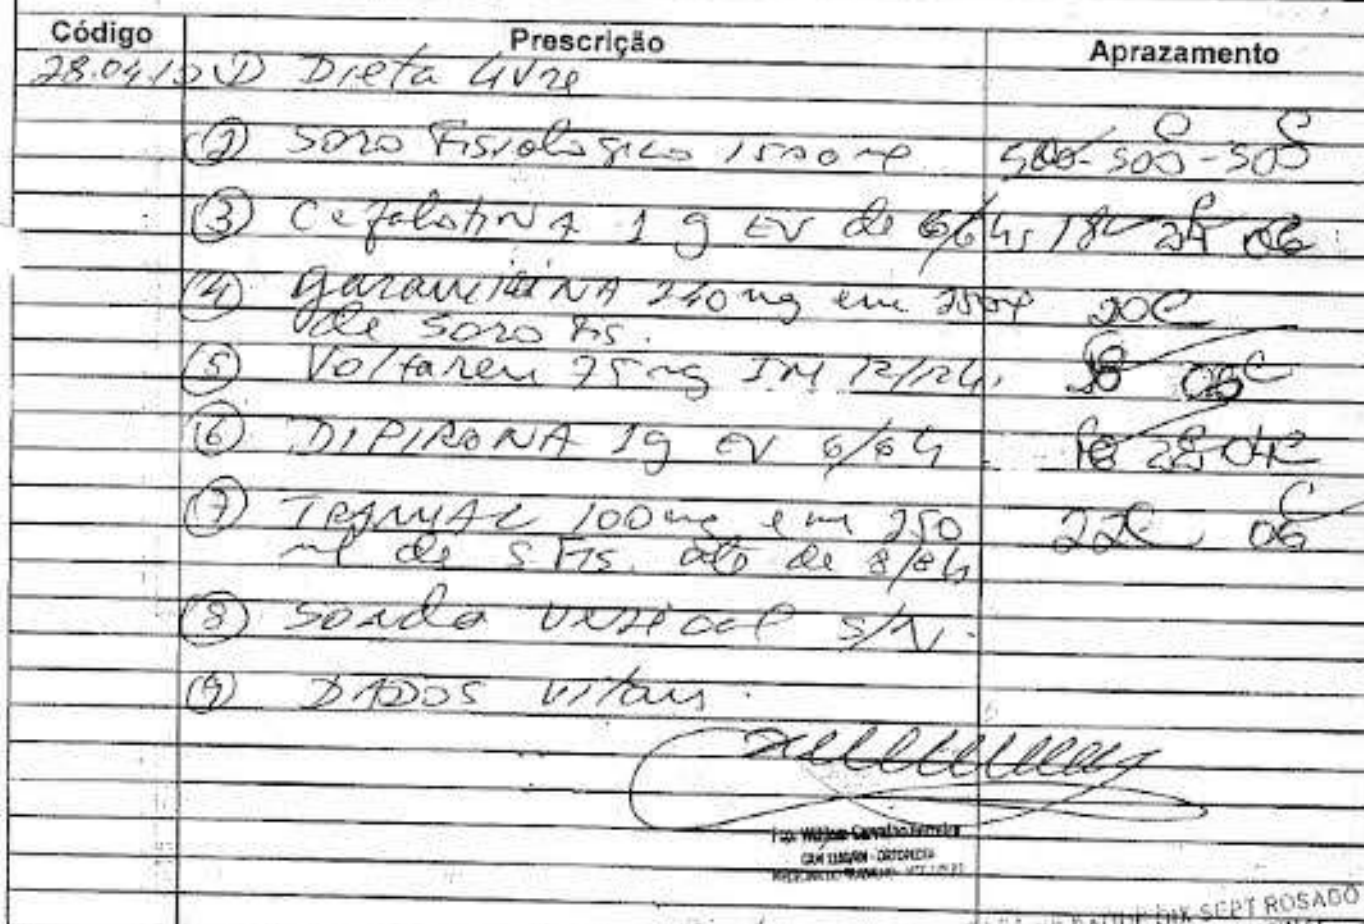 Código Prescrição Aprazamento
28.04.13 ① Dieta Livre
② Soro Fisiologico 1500ml 500-500-500
③ CefalotiNA 1 g EV de 6/6 hs 18 24 06
④ garamiciNA 240mg em 250ml 20
de Soro Fis.
⑤ Voltaren 75mg IM 12/12h. 06
⑥ DIPIRONA 1g EV 6/6h
⑦ TRAMAL 100mg em 250 22 06
ml de S Fis. de 8/8h
⑧ Sonda vesical S/N.
⑨ DADOS vitais.
Carvalho
ORTOPEDIA
SEPT ROSADO